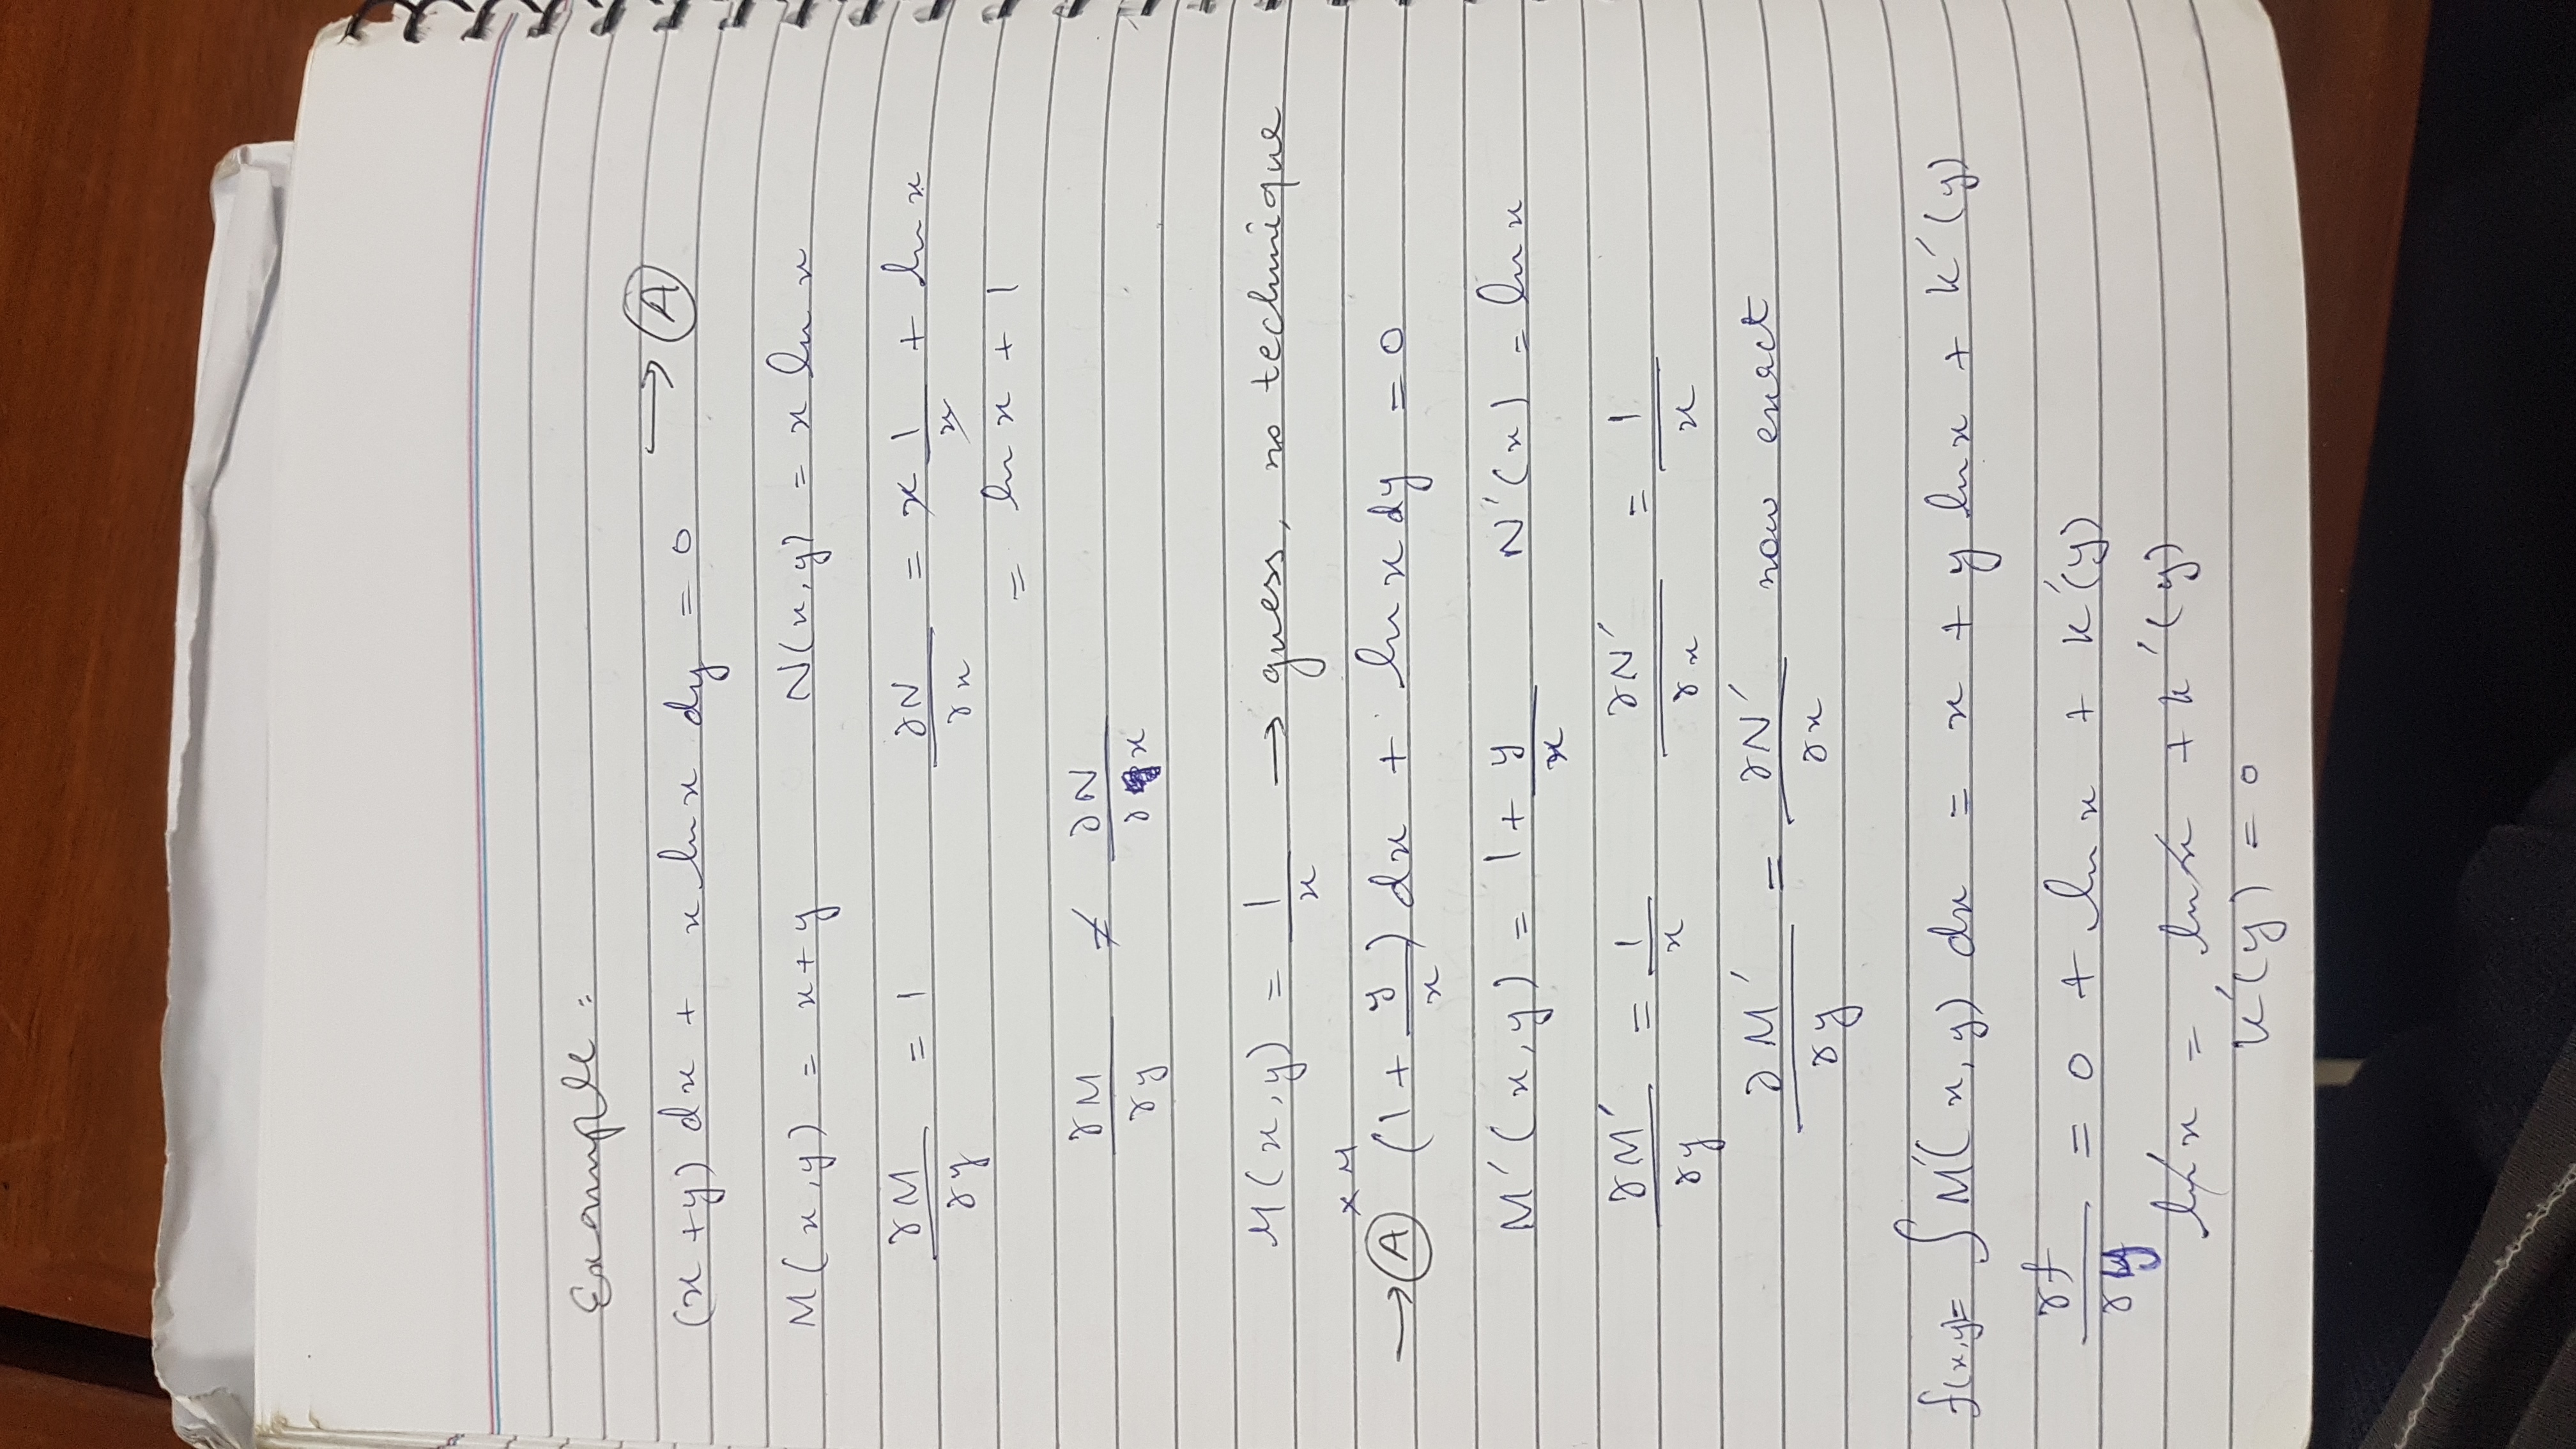 Example :
(x + y) dx + x ln x dy = 0 → Ⓐ
M(x, y) = x + y N(x, y) = x ln x
∂M/∂y = 1 ∂N/∂x = x 1/x + ln x
= ln x + 1
∂M/∂y ≠ ∂N/∂x
μ(x, y) = 1/x → guess, no technique
× μ
→ Ⓐ (1 + y/x) dx + ln x dy = 0
M'(x, y) = 1 + y/x N'(x) = ln x
∂M'/∂y = 1/x ∂N'/∂x = 1/x
∂M'/∂y = ∂N'/∂x now exact
f(x,y) = ∫ M'(x, y) dx = x + y ln x + k'(y)
∂f/∂y = 0 + ln x + k'(y)
ln x = ln x + k'(y)
k'(y) = 0